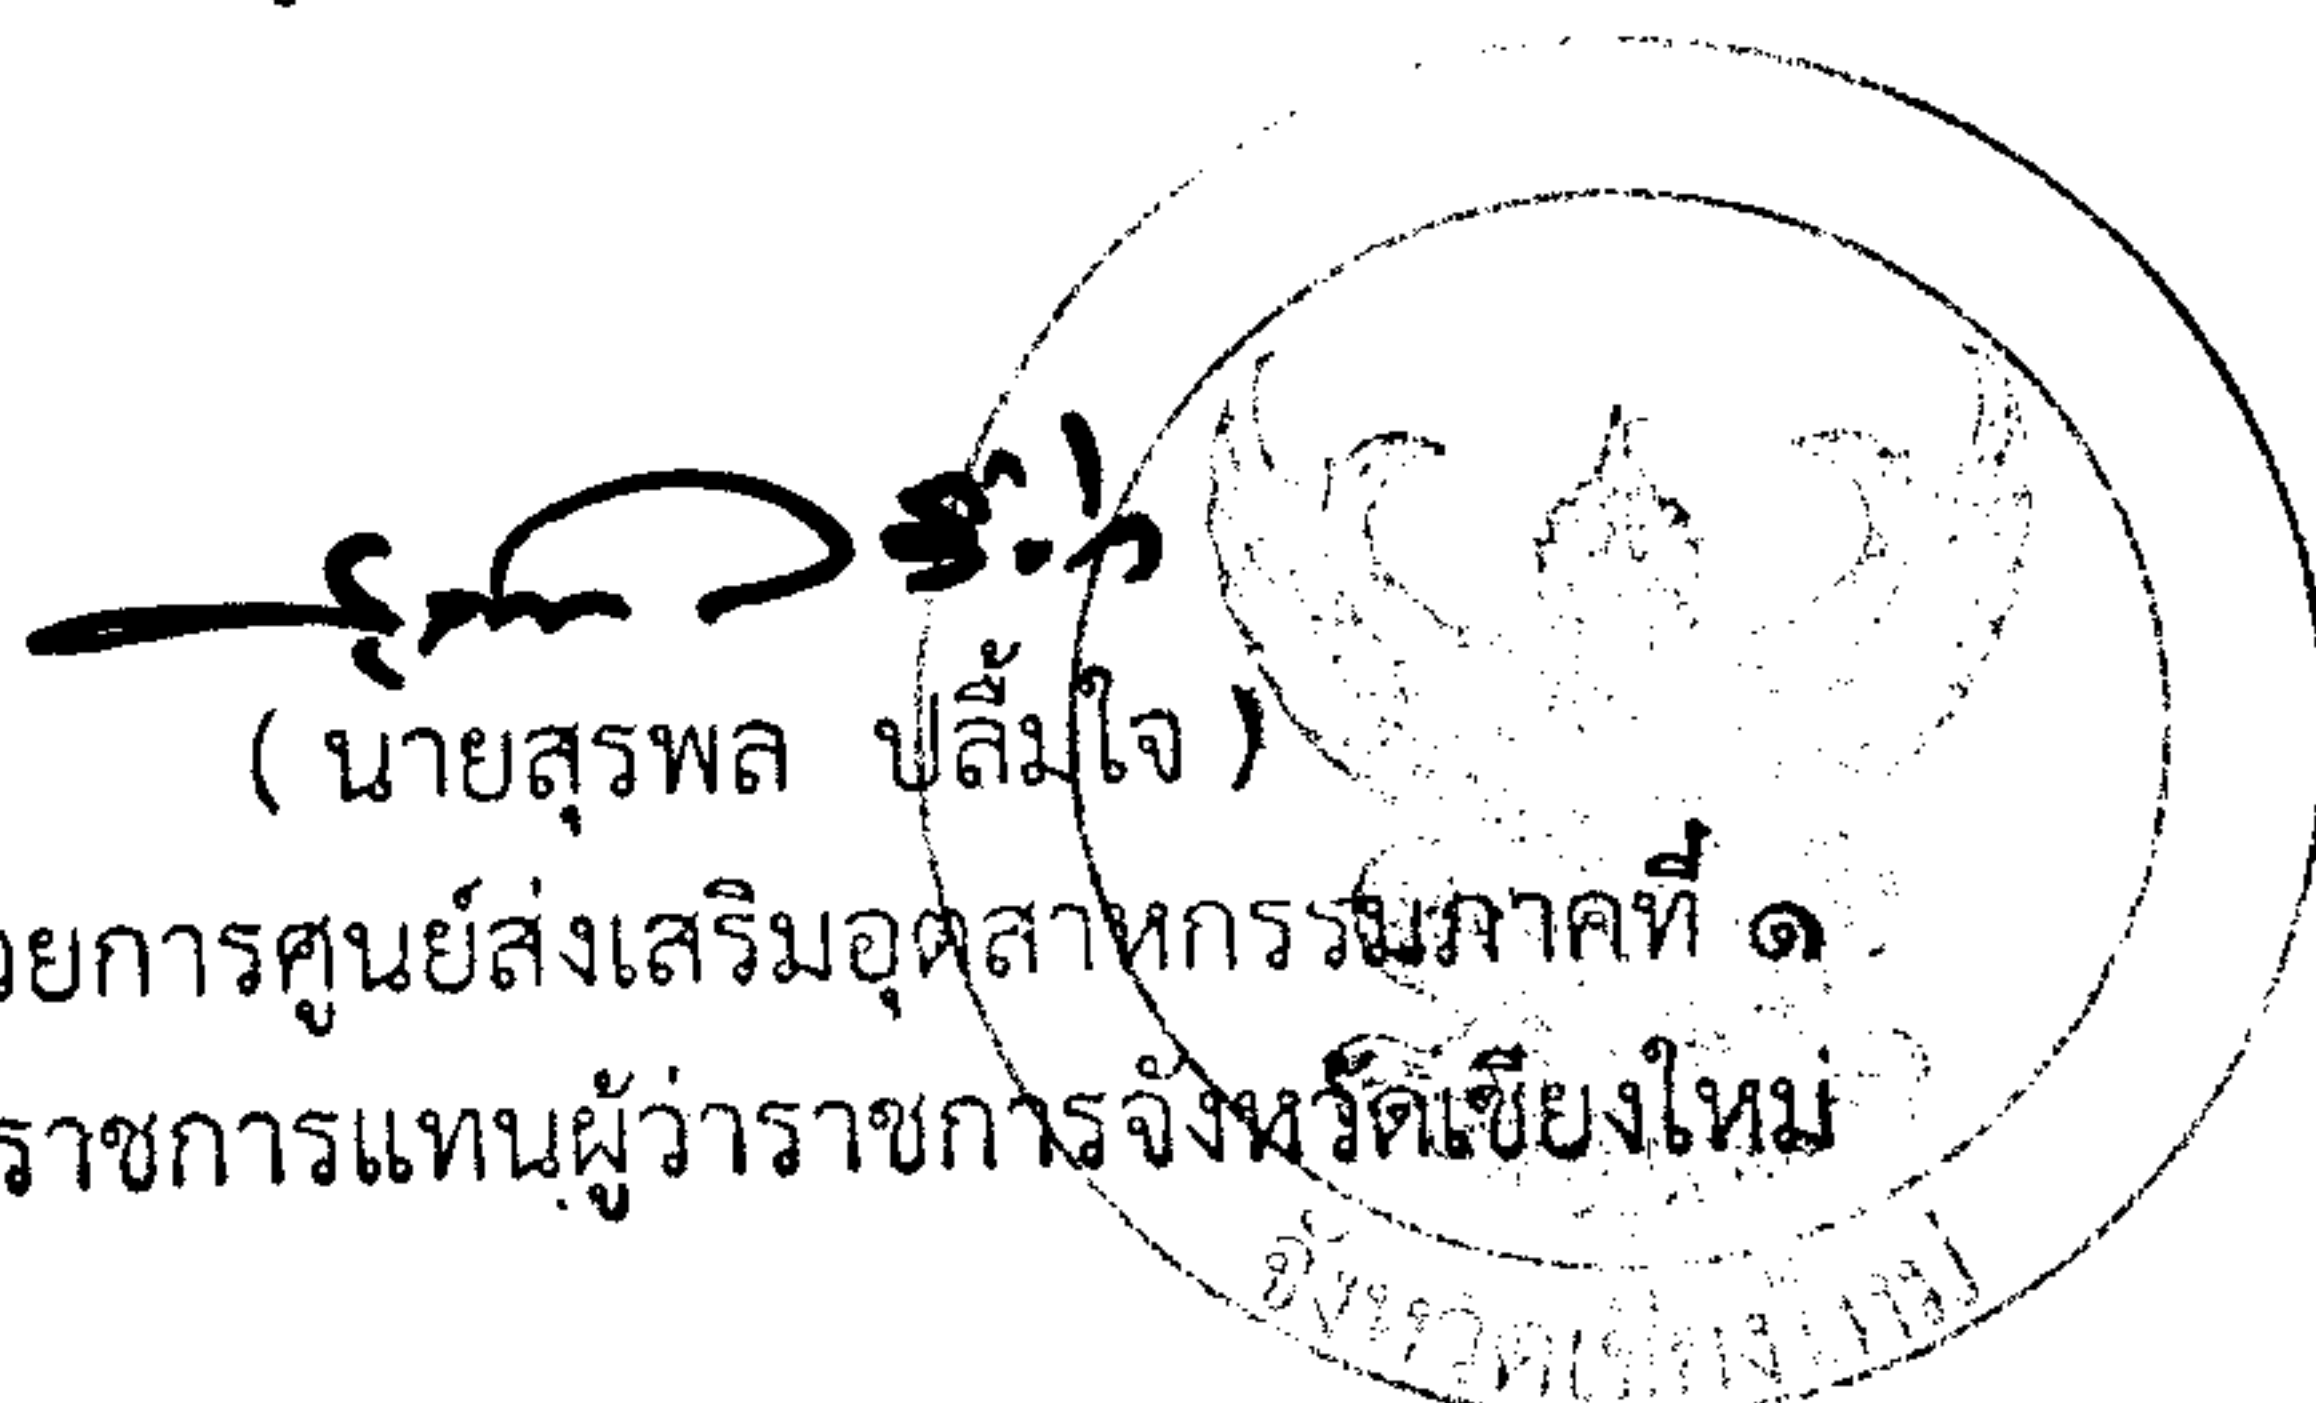 ( นายสุรพล ปลื้มใจ )
วยการศูนย์ส่งเสริมอุตสาหกรรมภาคที่ ๑
ราชการแทนผู้ว่าราชการจังหวัดเชียงใหม่
จังหวัดเชียงใหม่